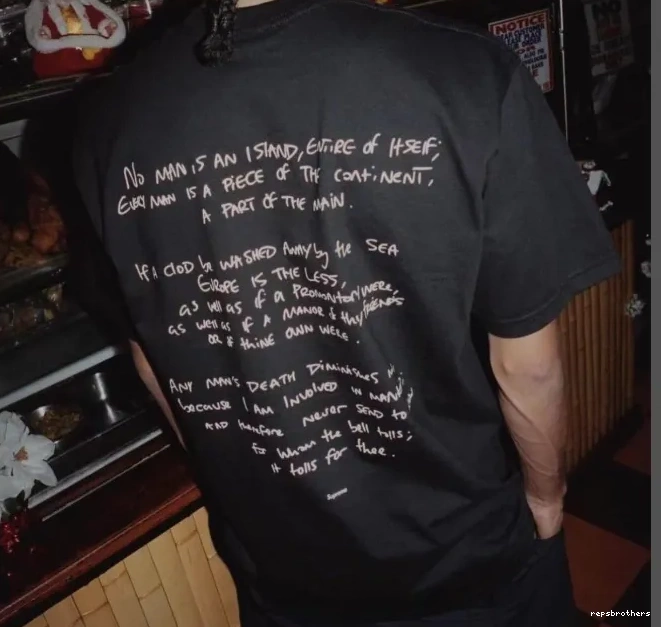 NOTICE
NO
NO MAN IS AN ISLAND, ENTIRE OF ITSELF;
EVERY MAN IS A PIECE OF THE CONTINENT,
A PART OF THE MAIN.
If A CLOD be WASHED AWAY by the SEA
EUROPE IS THE LESS,
as well as if a PROMONTORY WERE,
as well as if A MANOR of thy FRIENDS
OR if thINE OWN WERE.
ANY MAN'S DEATH DiminishES
because I AM Involved IN
AND therefore never SEND to
for whom the bell tolls;
It tolls for thee.
Supreme
repsbrothers